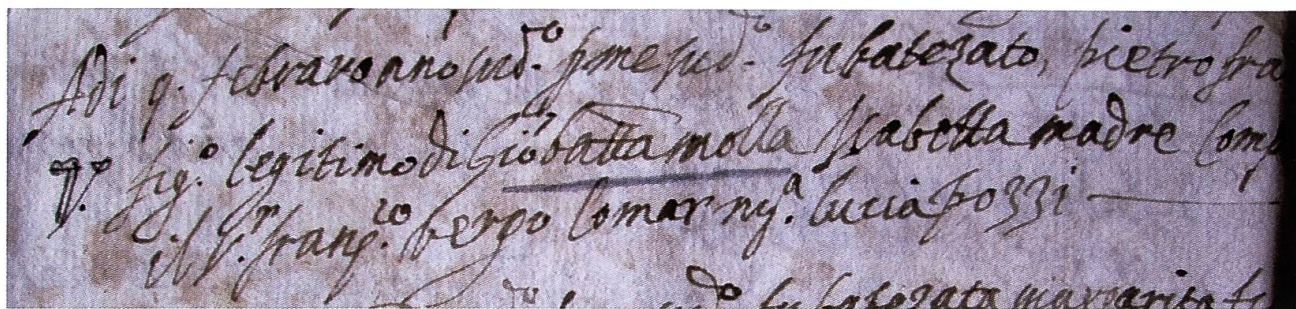 Adi 9. febraro anno sud.to p me sud.to fu batezato, pietro fra
fig.o legitimo di Gio batta molla Isabetta madre Comp
il S.r franc.co bergo Comar ma lucia pozzi
fu batezata margarita fi